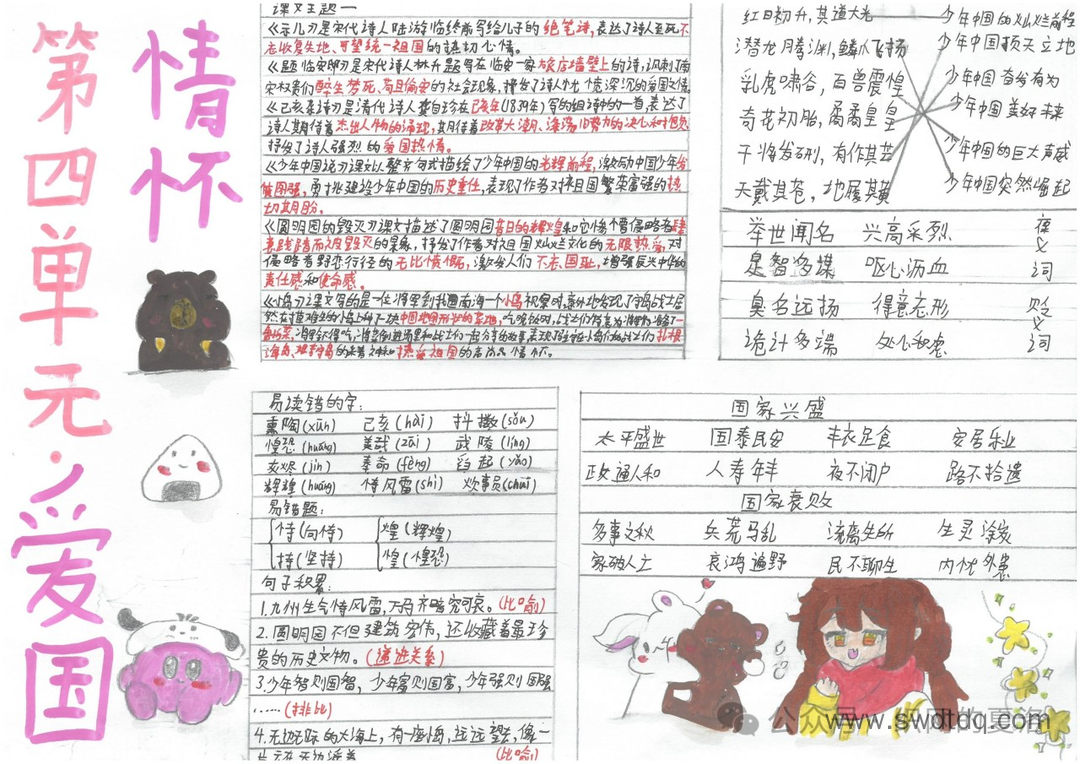 第四单元·爱国
情怀
课文主题一
《示儿》是宋代诗人陆游临终前写给儿子的绝笔诗,表达了诗人至死不
忘收复失地、渴望统一祖国的热切心情。
《题临安邸》是宋代诗人林升题写在临安一家旅店墙壁上的诗,讽刺了南
宋权贵们醉生梦死、苟且偷安的社会现象,抒发了诗人忧心
《己亥杂诗》是清代诗人龚自珍在己亥年(1839年)写的组诗中的一首,表达了
诗人期待着杰出人物的涌现,期待着改革大潮、涤荡旧势力的决心和
抒发了诗人强烈的爱国热情。
《少年中国说》课文以整齐句式描绘了少年中国的光辉前程,激励中国少年发
愤图强,勇担建设少年中国的历史重任,表现了作者对祖国繁荣富强的热
切期盼。
《圆明园的毁灭》课文描述了圆明园昔日的辉煌和它惨遭侵略者肆
意践踏而毁灭的景象,抒发了作者对祖国灿烂文化的无限热爱,对
侵略者野蛮行径的无比愤慨,激发人们不忘国耻,增强振兴中华的
责任感和使命感。
《小岛》课文写的是一位将军到我国南海一个小岛视察时,意外地发现了守岛战士居
然在小岛上种了一块中国地图形状的菜地,吃晚饭时,战士们
海岛、和热爱祖国的高尚情怀。
红日初升,其道大光
潜龙腾渊,鳞爪飞扬
乳虎啸谷,百兽震惶
奇花初胎,矞矞皇皇
干将发硎,有作其芒
天戴其苍,地履其黄
少年中国的灿烂前程
少年中国顶天立地
少年中国奋发有为
少年中国美好未来
少年中国的巨大声威
少年中国突然崛起
举世闻名 兴高采烈 褒
足智多谋 呕心沥血 义词
臭名远扬 得意忘形 贬
诡计多端 处心积虑 义词
易读错的字:
熏陶(xūn) 己亥(hài) 抖擞(sǒu)
惶恐(huáng) 哉(zāi) 武陵(líng)
灰烬(jìn) 奉命(fèng) 舀起(yǎo)
辉煌(huáng) 恃风雷(shì) 炊事员(chuī)
易错题:
恃(向恃) 煌(辉煌)
持(坚持) 惶(惶恐)
句子积累:
1.九州生气恃风雷,万马齐喑究可哀。(比喻)
2.圆明园不但建筑宏伟,还收藏着最珍
贵的历史文物。(递进关系)
3.少年智则国智,少年富则国富,少年强则国强
……(排比)
4.无边无际的大海上,有一座小岛,远远望去,像一
片云在天边漂着 (比喻)
国家兴盛
太平盛世 国泰民安 丰衣足食 安居乐业
政通人和 人寿年丰 夜不闭户 路不拾遗
国家衰败
多事之秋 兵荒马乱 流离失所 生灵涂炭
家破人亡 哀鸿遍野 民不聊生 内忧外患
公众号
www.swdtdq.com